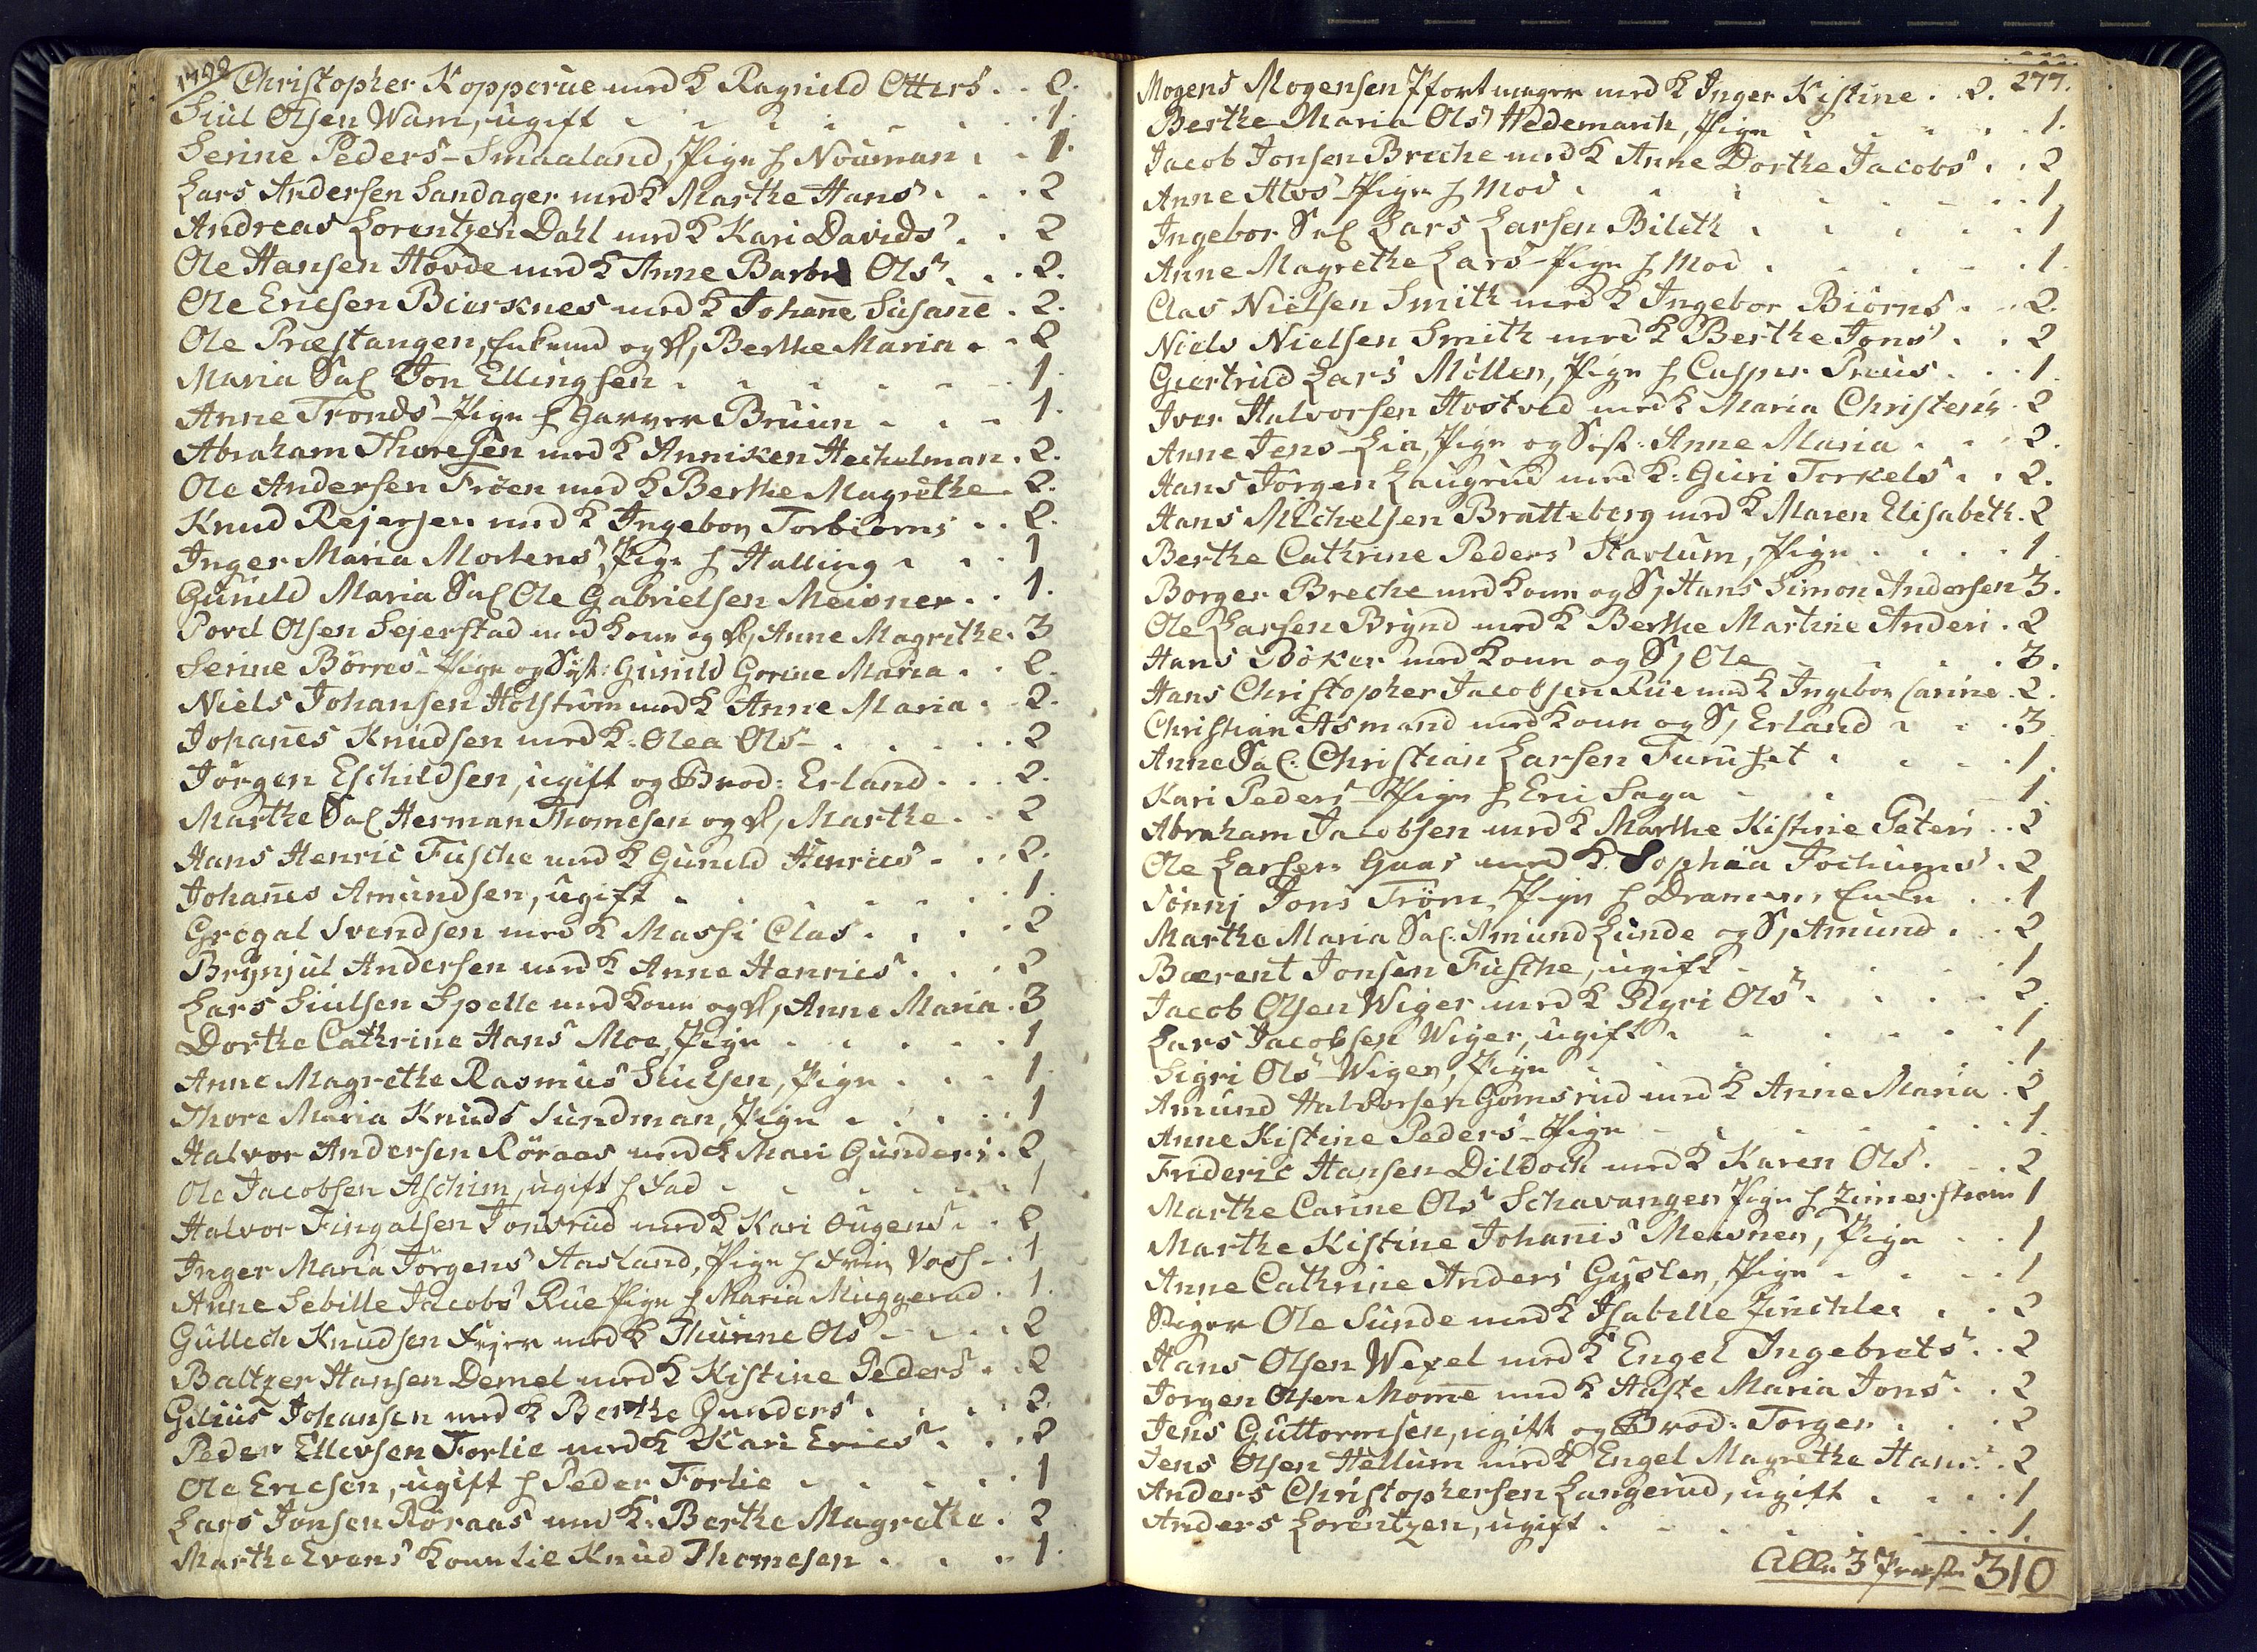 Christopher Kopperue med K Ragnild Otters . . 2.
Siul Olsen Wam, ugift . . . . 1.
Serine Peders- Smaaland, Pige h Nouman . . 1.
Lars Andersen Sandager med K Marthe Hans . . . 2
Andreas Lorentzen Dahl med K Kari Davids . . 2
Ole Hansen Hovde med K Anne Barbra Ols . . . 2.
Ole Ericsen Bierknes med K Johan̄e Susan̄e . 2.
Ole Præstangen, Enkemd og D, Berthe Maria . . 2
Maria Sal Jon Ellingsen . . . . 1.
Anne Tronds- Pige h Garver Bruun . . . 1.
Abraham Thoresen med K Anniken Hechelman . 2.
Ole Andersen Troen med K Berthe Magrethe . 2.
Knud Rejersen med K Ingebor Torbiørns . . 2.
Inger Maria Mortens, Pige h Halling . . . 1
Gunild Maria Sal Ole Gabrielsen Meisner . . 1.
Povel Olsen Sejerstad med Koun og D, Anne Magrethe . 3
Serine Børres- Pige og Syst: Gunild Gorine Maria . . 2.
Niels Johansen Holstrøm med K Anne Maria . 2.
Johan̄es Knudsen med K: Olea Ols- . . . . 2
Jørgen Eschildsen, ugift og Brod: Erland . . . 2.
Marthe Sal Herman Thomesen og D, Marthe . . 2
Hans Henric Fusche med K Gunild Henrics . . . 2.
Johan̄es Amundsen, ugift . . . . 1.
Gregal Svendsen med K Massi Clas . . . . 2
Brynjul Andersen med K Anne Henrics . . . 2
Lars Siulsen Spelle med Koun og D, Anne Maria . 3
Dorthe Cathrine Hans Moe, Pige . . . . 1
Anne Magrethe Rasmus Siulsen, Pige . . . 1.
Thore Maria Knuds Sundman, Pige . . . . 1
Halvor Andersen Røraas med K Mari Gunders . 2
Ole Jacobsen Aschim, ugift h Fad . . . . 1
Halvor Fingalsen Tonsrud med K Kari Ougens . . 2
Inger Maria Jørgens Aasland, Pige h Voss . . 1
Anne Sebille Jacobs Rue Pige h Maria Muggerud . 1.
Gullech Knudsen Fejer med K Thurine Ols . . . 2
Baltzer Hansen Demel med K Kistine Peders . . 2
Gilius Johansen med K Berthe Gunders . . . . 2.
Peder Ellevsen Forlie med K Kari Erics . . . 2
Ole Ericsen, ugift h Peder Forlie . . . . 1
Lars Jonsen Røraas med K. Berthe Magrethe . 2
Marthe Evens Koun til Knud Thomesen . . . 1.
277.
Mogens Mogensen med K Inger Kistine . . 2.
Berthe Maria Ols Hedemarch, Pige . . . . 1.
Jacob Jonsen Breche med K Anne Dorthe Jacobs . . 2
Anne Atvs- Pige h Mod . . . . 1.
Ingebor Sal Lars Larsen Bileth . . . . 1
Anne Magrethe Lars- Pige h Mod . . . . 1.
Clas Nielsen Smith med K Ingebor Biørns . . 2.
Niels Nielsen Smith med K Berthe Jons . . 2
Giertrud Lars Møllen, Pige h Casper Preus . . . 1.
Iver Halvorsen Hvotved med K Maria Christens . 2
Anne Jens- Lia, Pige og Søst: Anne Maria . . . 2.
Hans Jørgen Laugrud med K: Guri Torkels . . 2.
Hans Michelsen Bratteberg med K Maren Elisabeth . 2
Berthe Cathrine Peders Stavlum, Pige . . . . 1.
Borger Breche med Koun og S, Hans Simon Andersen 3.
Ole Larsen Brynd med K Berthe Martine Anders . 2
Hans Bøker med Koun og S, Ole . . . . 3.
Hans Christopher Jacobsen Rue med K Ingebor Carine . 2.
Christian Asmand med Koun og S, Erland . . . 3
Anne Sal: Christian Larsen Furuset . . . . 1.
Kari Peders- Pige h Eric Saga . . . 1.
Abraham Jacobsen med K Marthe Kistine Peters . . 2
Ole Larsen Gaas med K. Sophia Jochums . 2
Sønnj Jons Trøm, Pige h Dramens Enke . . 1
Marthe Maria Sal: Amund Lunde og S, Amund . . 2
Baerent Jonsen Fusche, ugift . . . . 1
Jacob Olsen Wiger med K Rgri Ols . . . . 2.
Lars Jacobsen Wiger, ugift . . . . 1
Sigri Ols- Wiger, Pige . . . . 1
Amund Halvorsen Gomsrud med K Anne Maria . 2
Anne Kistine Peders- Pige . . . . 1.
Frideric Hansen Dildoch med K Karen Ols . . . 2
Marthe Carine Ols Schavangen Pige h Zimerstrøm 1
Marthe Kistine Johanis Meisner, Pige . . 1
Anne Cathrine Anders Gysler, Pige . . . . 1
Ole Sunde med K Isabelle Zinchler . . 2
Hans Olsen Wexel med K Engel Ingebrets . . 2
Jørgen Olsen Mom̄e med K Aaste Maria Jons . . 2
Jens Guttormsen, ugift og Brod. Torger . . . 2
Jens Olsen Hellum med K Engel Magrethe Hans . . 2
Anders Christophersen Langerud, ugift . . . . 1
Anders Lorentzen, ugift . . . . 1.
Alle 3 310